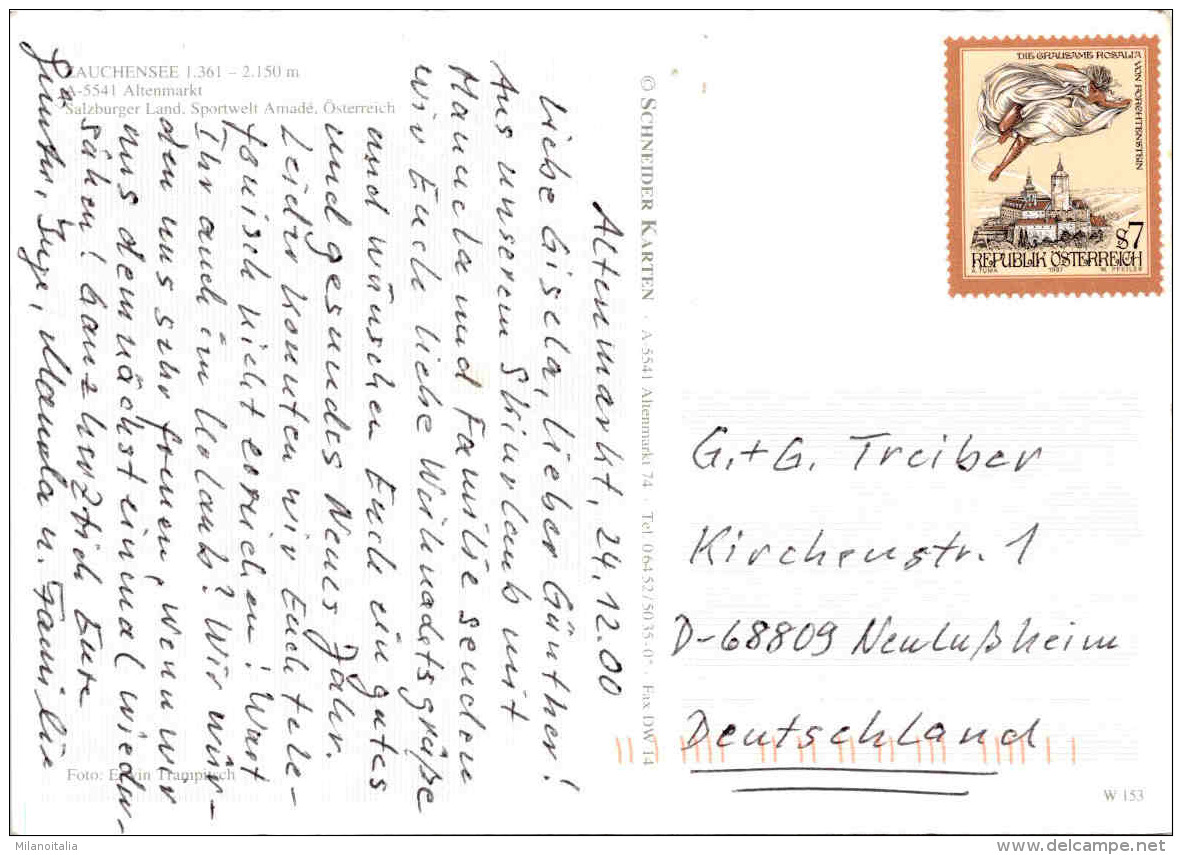 ZAUCHENSEE 1.361 – 2.150 m
A-5541 Altenmarkt
Salzburger Land, Sportwelt Amadé, Österreich
Altenmarkt, 24.12.00
Liebe Gisela, lieber Günther!
Aus unserem Skiurlaub mit
Manuela und Familie senden
wir Euch liebe Weihnachtsgrüße
und wünschen Euch ein gutes
und gesundes Neues Jahr.
Leider konnten wir Euch tele-
fonisch nicht erreichen! Wart
Ihr auch im Urlaub? Wir wür-
den uns sehr freuen, wenn wir
uns demnächst einmal wieder-
sähen! Ganz herzlich Eure
Günter, Inge, Manuela u. Familie
Foto: Erwin Trampitsch
© SCHNEIDER KARTEN · A-5541 Altenmarkt 74 · Tel. 06452/5035-0* · Fax DW 14
DIE GRAUSAME ROSALIA
VON FORCHTENSTEIN
S7
REPUBLIK ÖSTERREICH
A. TUMA 1997 W. PFEILER
G.+G. Treiber
Kirchenstr. 1
D-68809 Neulußheim
Deutschland
W 153
Milanoitalia
www.delcampe.net